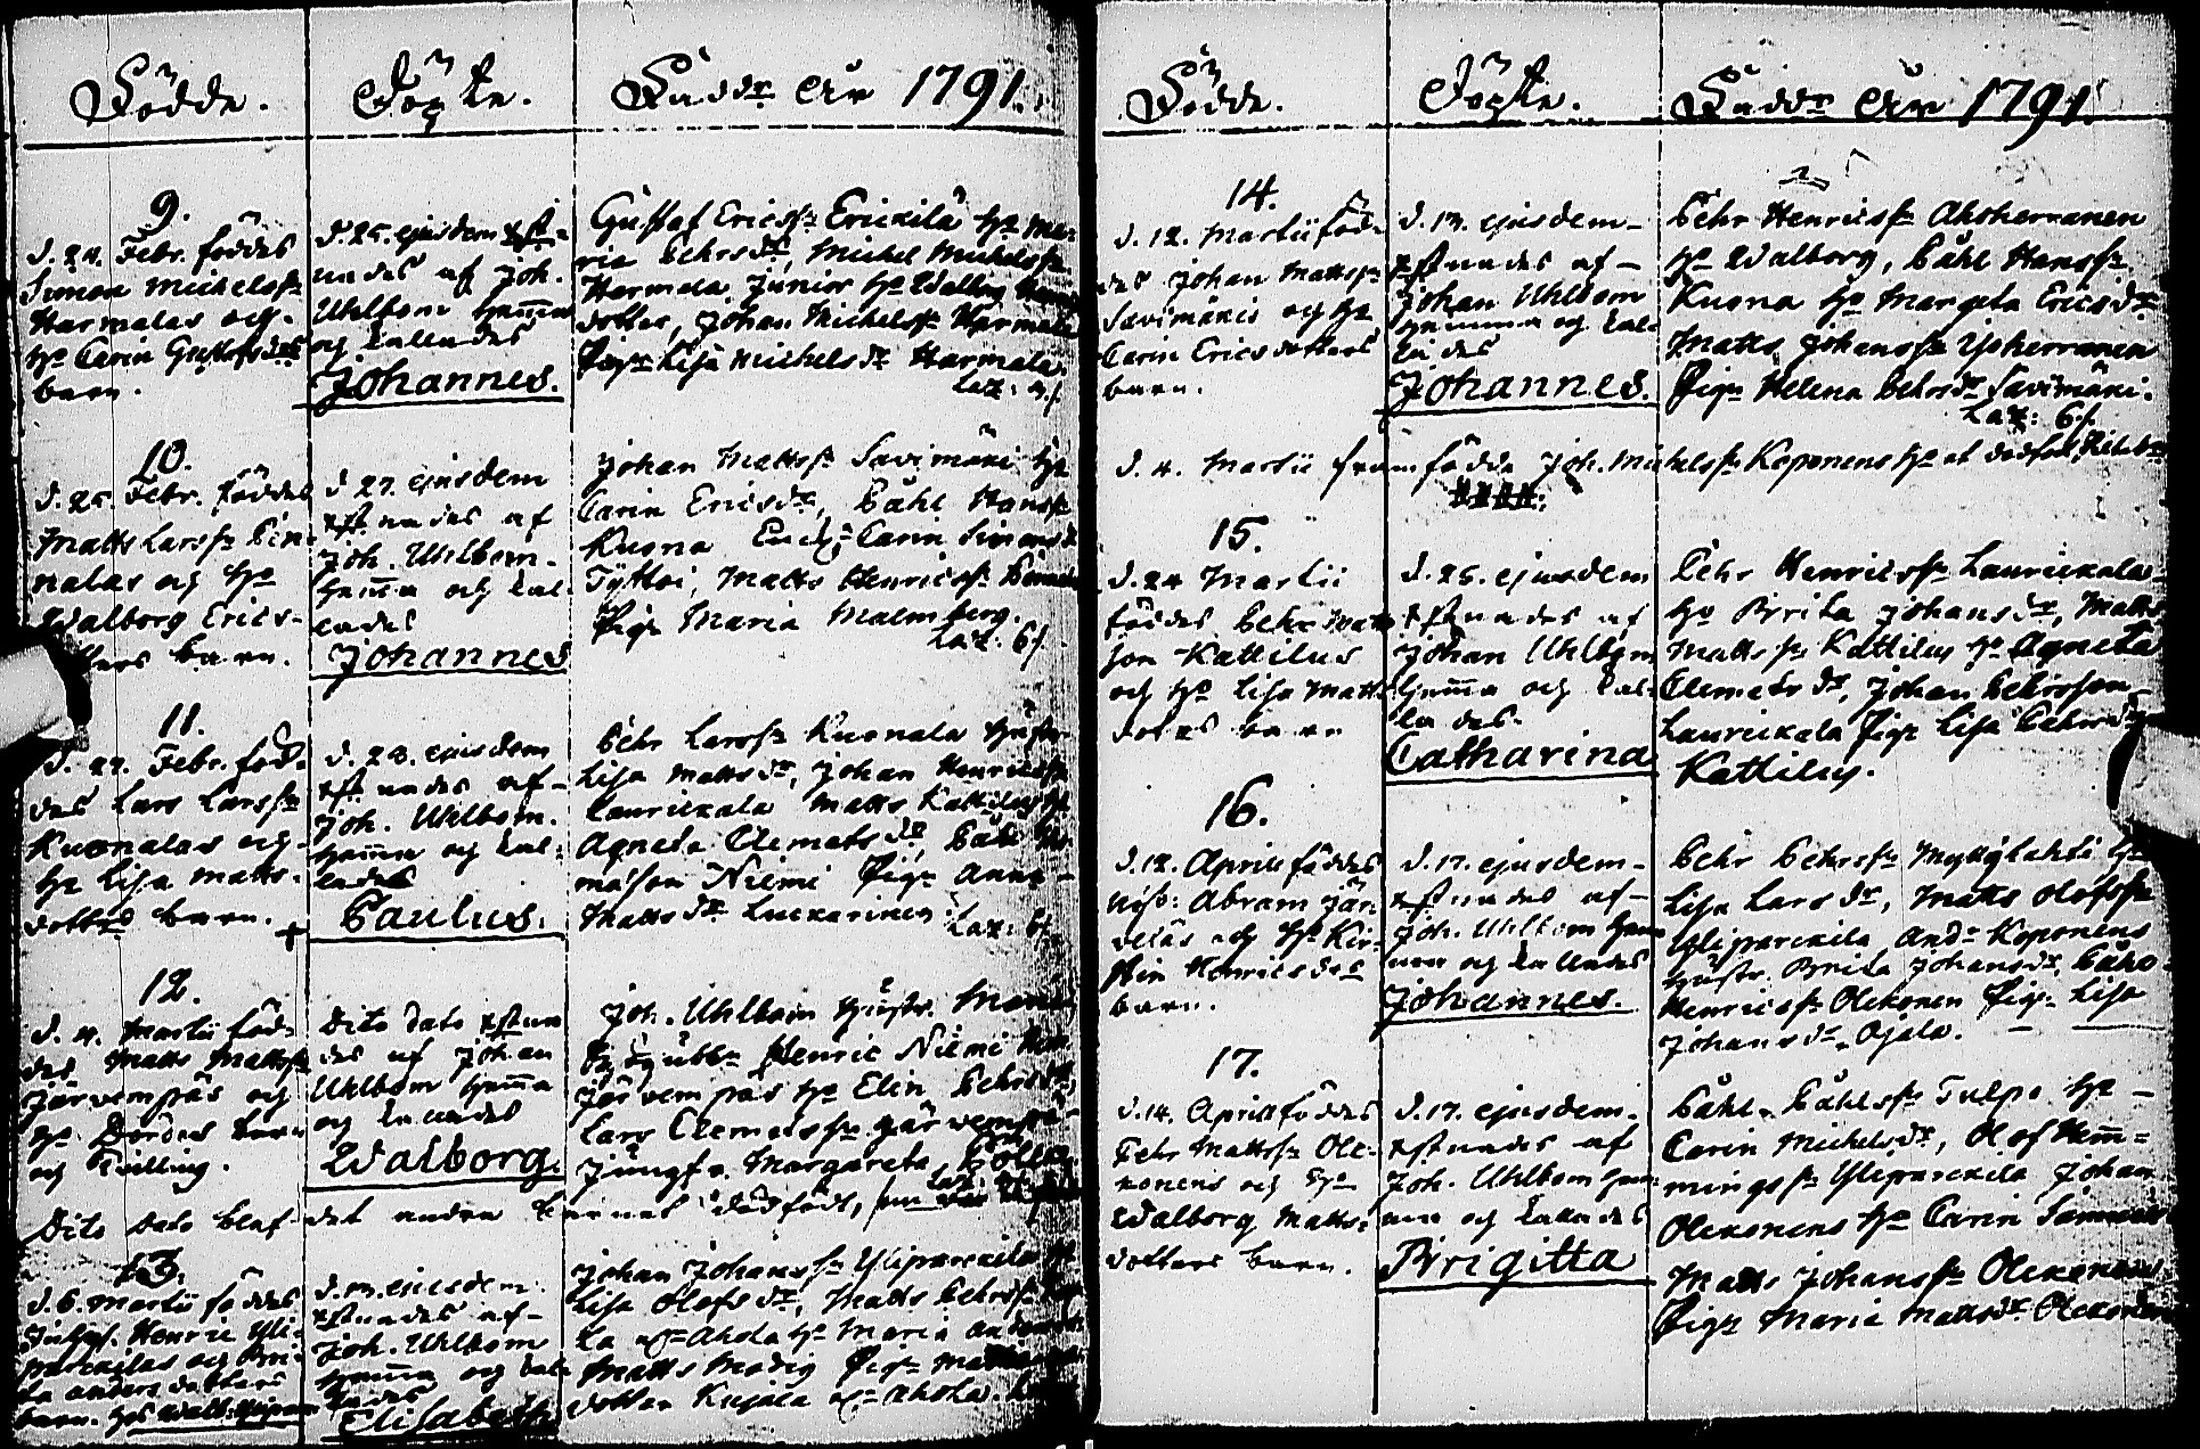 Födde.
Döpte.
Faddr åhr 1791.
9.
d. 24. Febr. föddes
Simon Michelss:
Harmalas och
h:o Carin Gustafsd:rs
barn.
d. 25. ejusdem xst-
nades af Joh.
Uhlbom hemma
och kallades
Johannes.
Gustaf Ericss: Erickilä h:o Ma-
ria Pehrsd:r, Michel Michelss:
Harmala Junior h:o Walborg
dotter, Johan Michelss: Harmala
Pig: Lisa Michelsd:r Harmala.
10.
d. 25. Febr. föddes
Matts Larss: Pen-
nalas och h:o
Walborg Erics-
dotters barn.
d. 27. ejusdem
xstnades af
Joh. Uhlbom.
hemma och kal-
lades
Johannes
Johan Mattss: Savimäki h:o
Carin Ericsd:r, Påhl Hanss:
Kuona Carin Simonsd:
Tyttoi, Matts Henricss:
Pig: Maria Malmberg.
Lax: 6/.
11.
d. 27. Febr. föd-
des Lars Larss:
Kuonalas och
h:o Lisa Matts-
dotters barn. +
d. 28. ejusdem
xstnades af
Joh. Uhlbom.
hemma och kal-
lades
Paulus.
Pehr Larss: Kuonala hustr.
Lisa Mattsd:r, Johan Henricss:
Laurickala Matts Kattilus h:o
Agneta Clemetsd:r, Påhl Tho-
masson Niemi Pig: Anna
Mattsd:r Luckarinen.
Lax: 6/.
12.
d. 4. Martii föd-
des Matts Mattss:
Järvempäs och
h:o Dordes barn
och Tvilling.
Dito dato xstna-
des af Johan
Uhlbom hemma
och kallades
Walborg.
Joh. Uhlbom hustr.
Henric Niemi
Järvempäs h:o Elin Pehrsd:r
Lars Clemetss: Järvempä
Jungfr. Margareta
Dito dato blef det andra barnet dödfödt,
13.
d. 6. Martii föddes
Henric Yli-
parckilas och Bri-
ta Andersdotters
barn.
d. ejusdem
xstnades af
Joh. Uhlbom
hemma och kal-
lades
Elisabeth
Johan Johanss: Yliparckila
Lisa Olofsd:r, Matts Pehrss:
Ahola h:o Maria
Matts Modig Pig:
dotter Kujala Ahola.
Födde.
Döpte.
Faddr åhr 1791.
14.
d. 12. Martii föd-
des Johan Mattss:
Savimäkis och h:o
Carin Ericsdotters
barn.
d. 13. ejusdem
xstnades af
Johan Uhlbom
hemma och kal-
lades
Johannes.
Pehr Henricss: Ahoherranen
h:o Walborg, Påhl Hanss:
Kuona h:o Margeta Ericsd:r
Matts Johanss: Ypherranen
Pig: Helena Pehrsd:r Savimäki.
Lax: 6/.
d. 4. Martii framfödde Joh. Michelss: Koponens h:o et dödfödt
15.
d. 24 Martii
föddes Pehr Matts-
son Kattilus
och h:o Lisa Matts-
dotters barn
d. 25. ejusdem
xstnades af
Johan Uhlbom
hemma och kal-
lades.
Catharina
Pehr Henricss: Laurickala
h:o Brita Johansd:r, Matts
Mattss: Kattilus h:o Agneta
Clemetsd:r, Johan Pehrsson
Laurickala Pig: Lisa Pehrsd:r
Kattilus.
16.
d. 12. Aprill föddes
Abram Jär-
veläs och h:o Kir-
stin Henricsd:s
barn.
d. 17. ejusdem
xstnades af
Joh. Uhlbom hem-
ma och kallades
Johannes.
Pehr Pehrss: Myllylahti h:o
Lisa Larsd:r, Matts Olofss:
Yliparckila And: Koponens
hustr. Brita Johansd:r, Påhl
Henricss: Olckonen Pig: Lisa
Johansd:r Ojala.
17.
d. 14. Aprill föddes
Pehr Mattss: Olc-
konens och h:o
Walborg Matts-
dotters barn.
d. 17. ejusdem.
xstnades af
Joh. Uhlbom hem-
ma och kallades
Brigitta
Påhl Påhlss: Tulpo h:o
Carin Michelsd:r, Olof Hem-
mingss: Yliparckila Johan
Olckonens h:o Carin
Matts Johanss: Olckonens
Pig: Maria Mattsd:r Olckonen